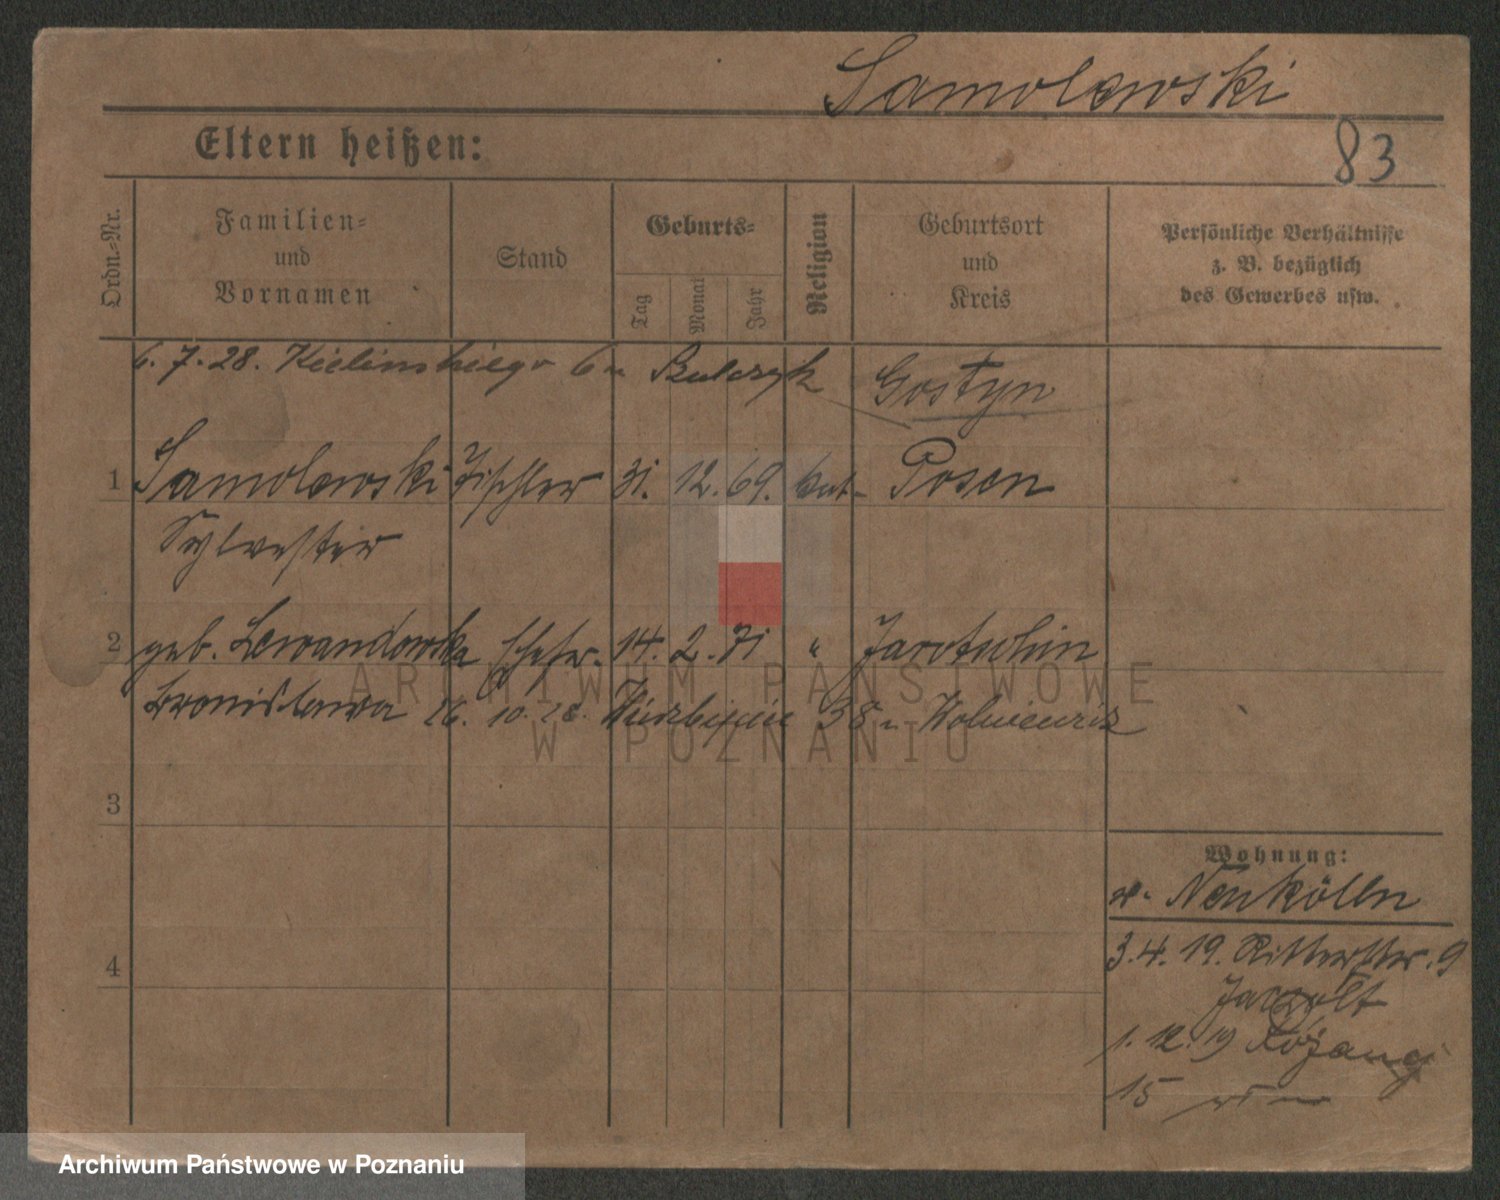 Samolewski
83
Eltern heißen:
Ordn.-Nr.
Familien-
und
Vornamen
Stand
Geburts-
Tag
Monat
Jahr
Religion
Geburtsort
und
Kreis
Persönliche Verhältnisse
z. B. bezüglich
des Gewerbes usw.
6. 7. 28. 6 Gostyn
1 Samolewski Tischler 31. 12. 69. kat. Posen
Sylvester
2 geb. Lewandowska Ehefr. 14. 2. 71 " Jarotschin
Bronislawa 26. 10. 28. 38
3
4
Wohnung:
v. Neukölln
3. 4. 19. Ritterstr. 9
1. 12. 19
15
ARCHIWUM PAŃSTWOWE
W POZNANIU
Archiwum Państwowe w Poznaniu